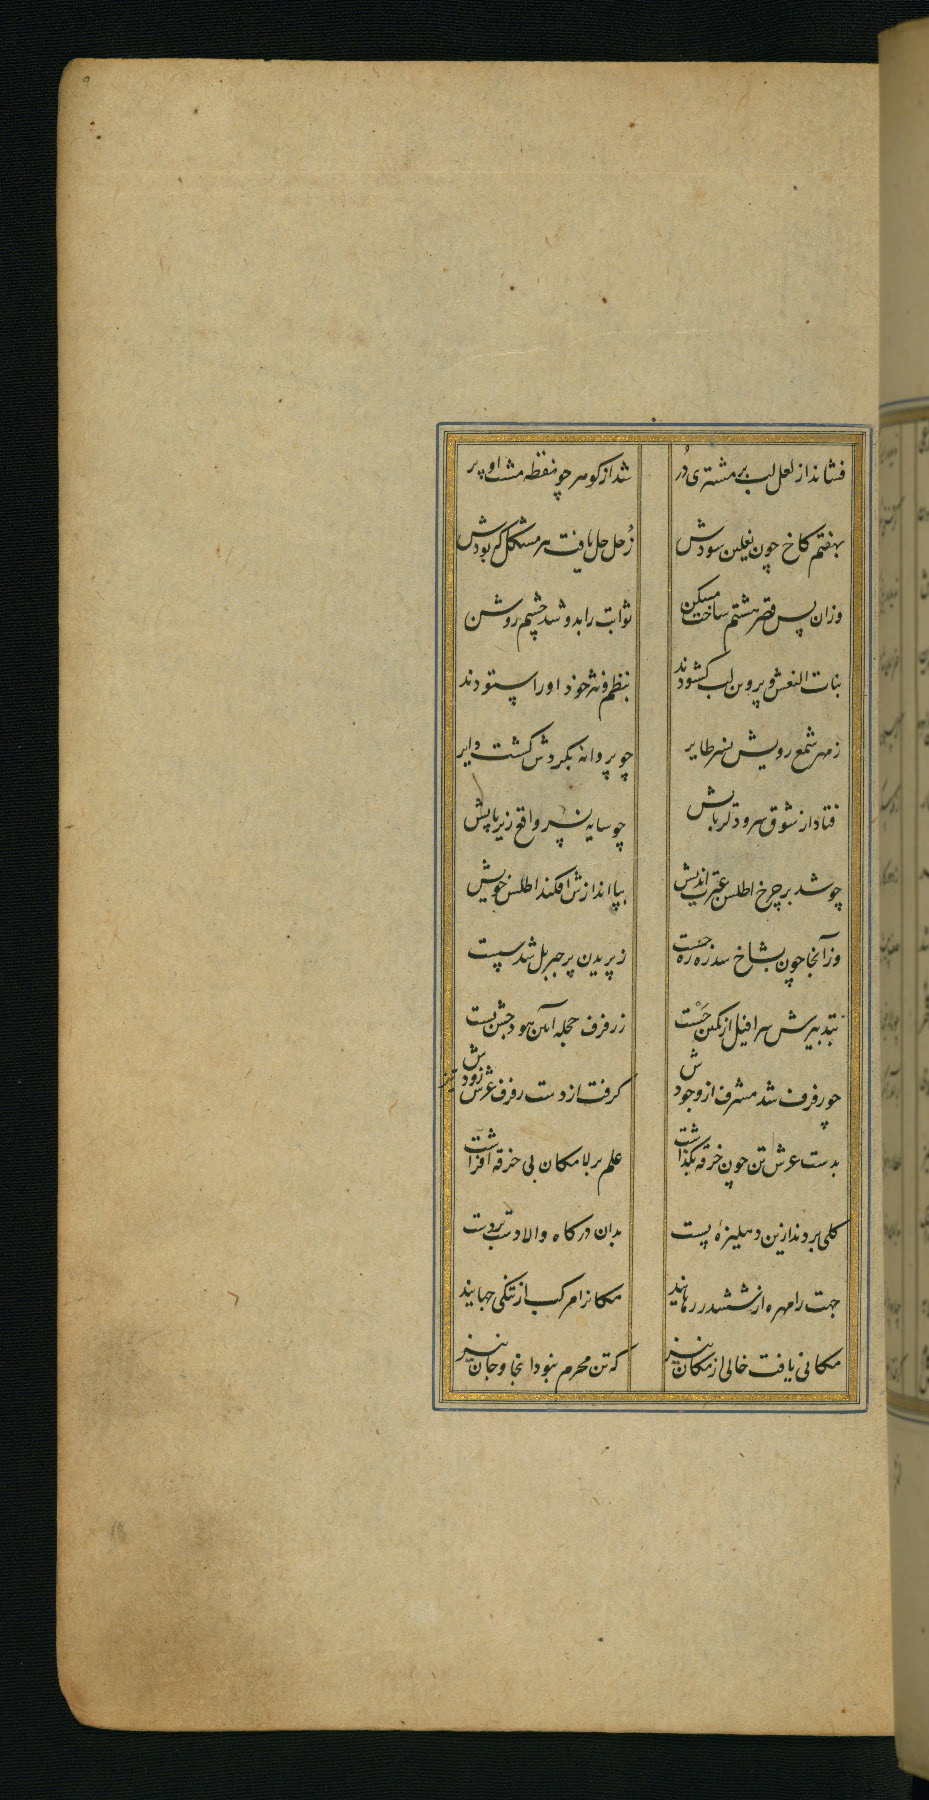 فشاند از لعل لب بر مشتری دُر
شد از کوهر چو نقطه مشت او پر
بهفتم کاخ چون نعلین سودش
زُحل حل یافت هر مشکل که بودش
وزان پس قصر هشتم ساخت مسکن
ثوابت را بدو شد چشم روشن
بنات النعش و پروین لب کشودند
بنظم و نثر خود او را ستودند
ز مهر شمع رویش نسر طایر
چو پروانه بکردش کشت دایر
فتاد از شوق سرو دلربایش
چو سایه نسر واقع زیر پایش
چو شد بر چرخ اطلس عبرت اندیش
بپا اندازش افکند اطلس خویش
وز آنجا چون بشاخ سدره ره جست
ز پریدن پر جبریل شد سست
بتدبیرش سرافیل از کمین جَست
ز رفرف حجله آیین هودجش بست
چو رفرف شد مشرف از وجودش
کرفت از دست رفرف عرش زودش
بدست عرش تن چون خرقه بکذاشت
علم بر لامکان بی خرقه افراشت
کلی بردند ازین دهلیزهٔ پست
بدان درکاه والا دست بر دست
جهت را مهره از ششدر رهانید
مکانرا مرکب از تنکی جهانید
مکانی یافت خالی از مکان نیز
که تن محرم نبود آنجا و جان نیز